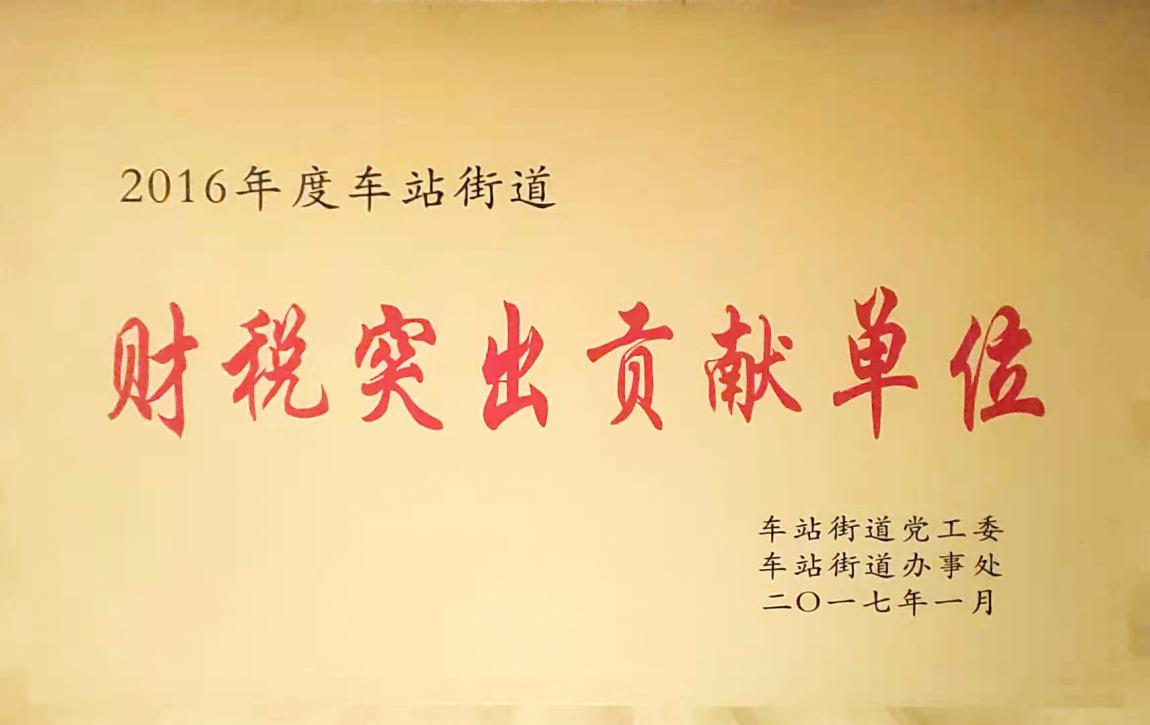 2016年度车站街道
财税突出贡献单位
车站街道党工委
车站街道办事处
二〇一七年一月